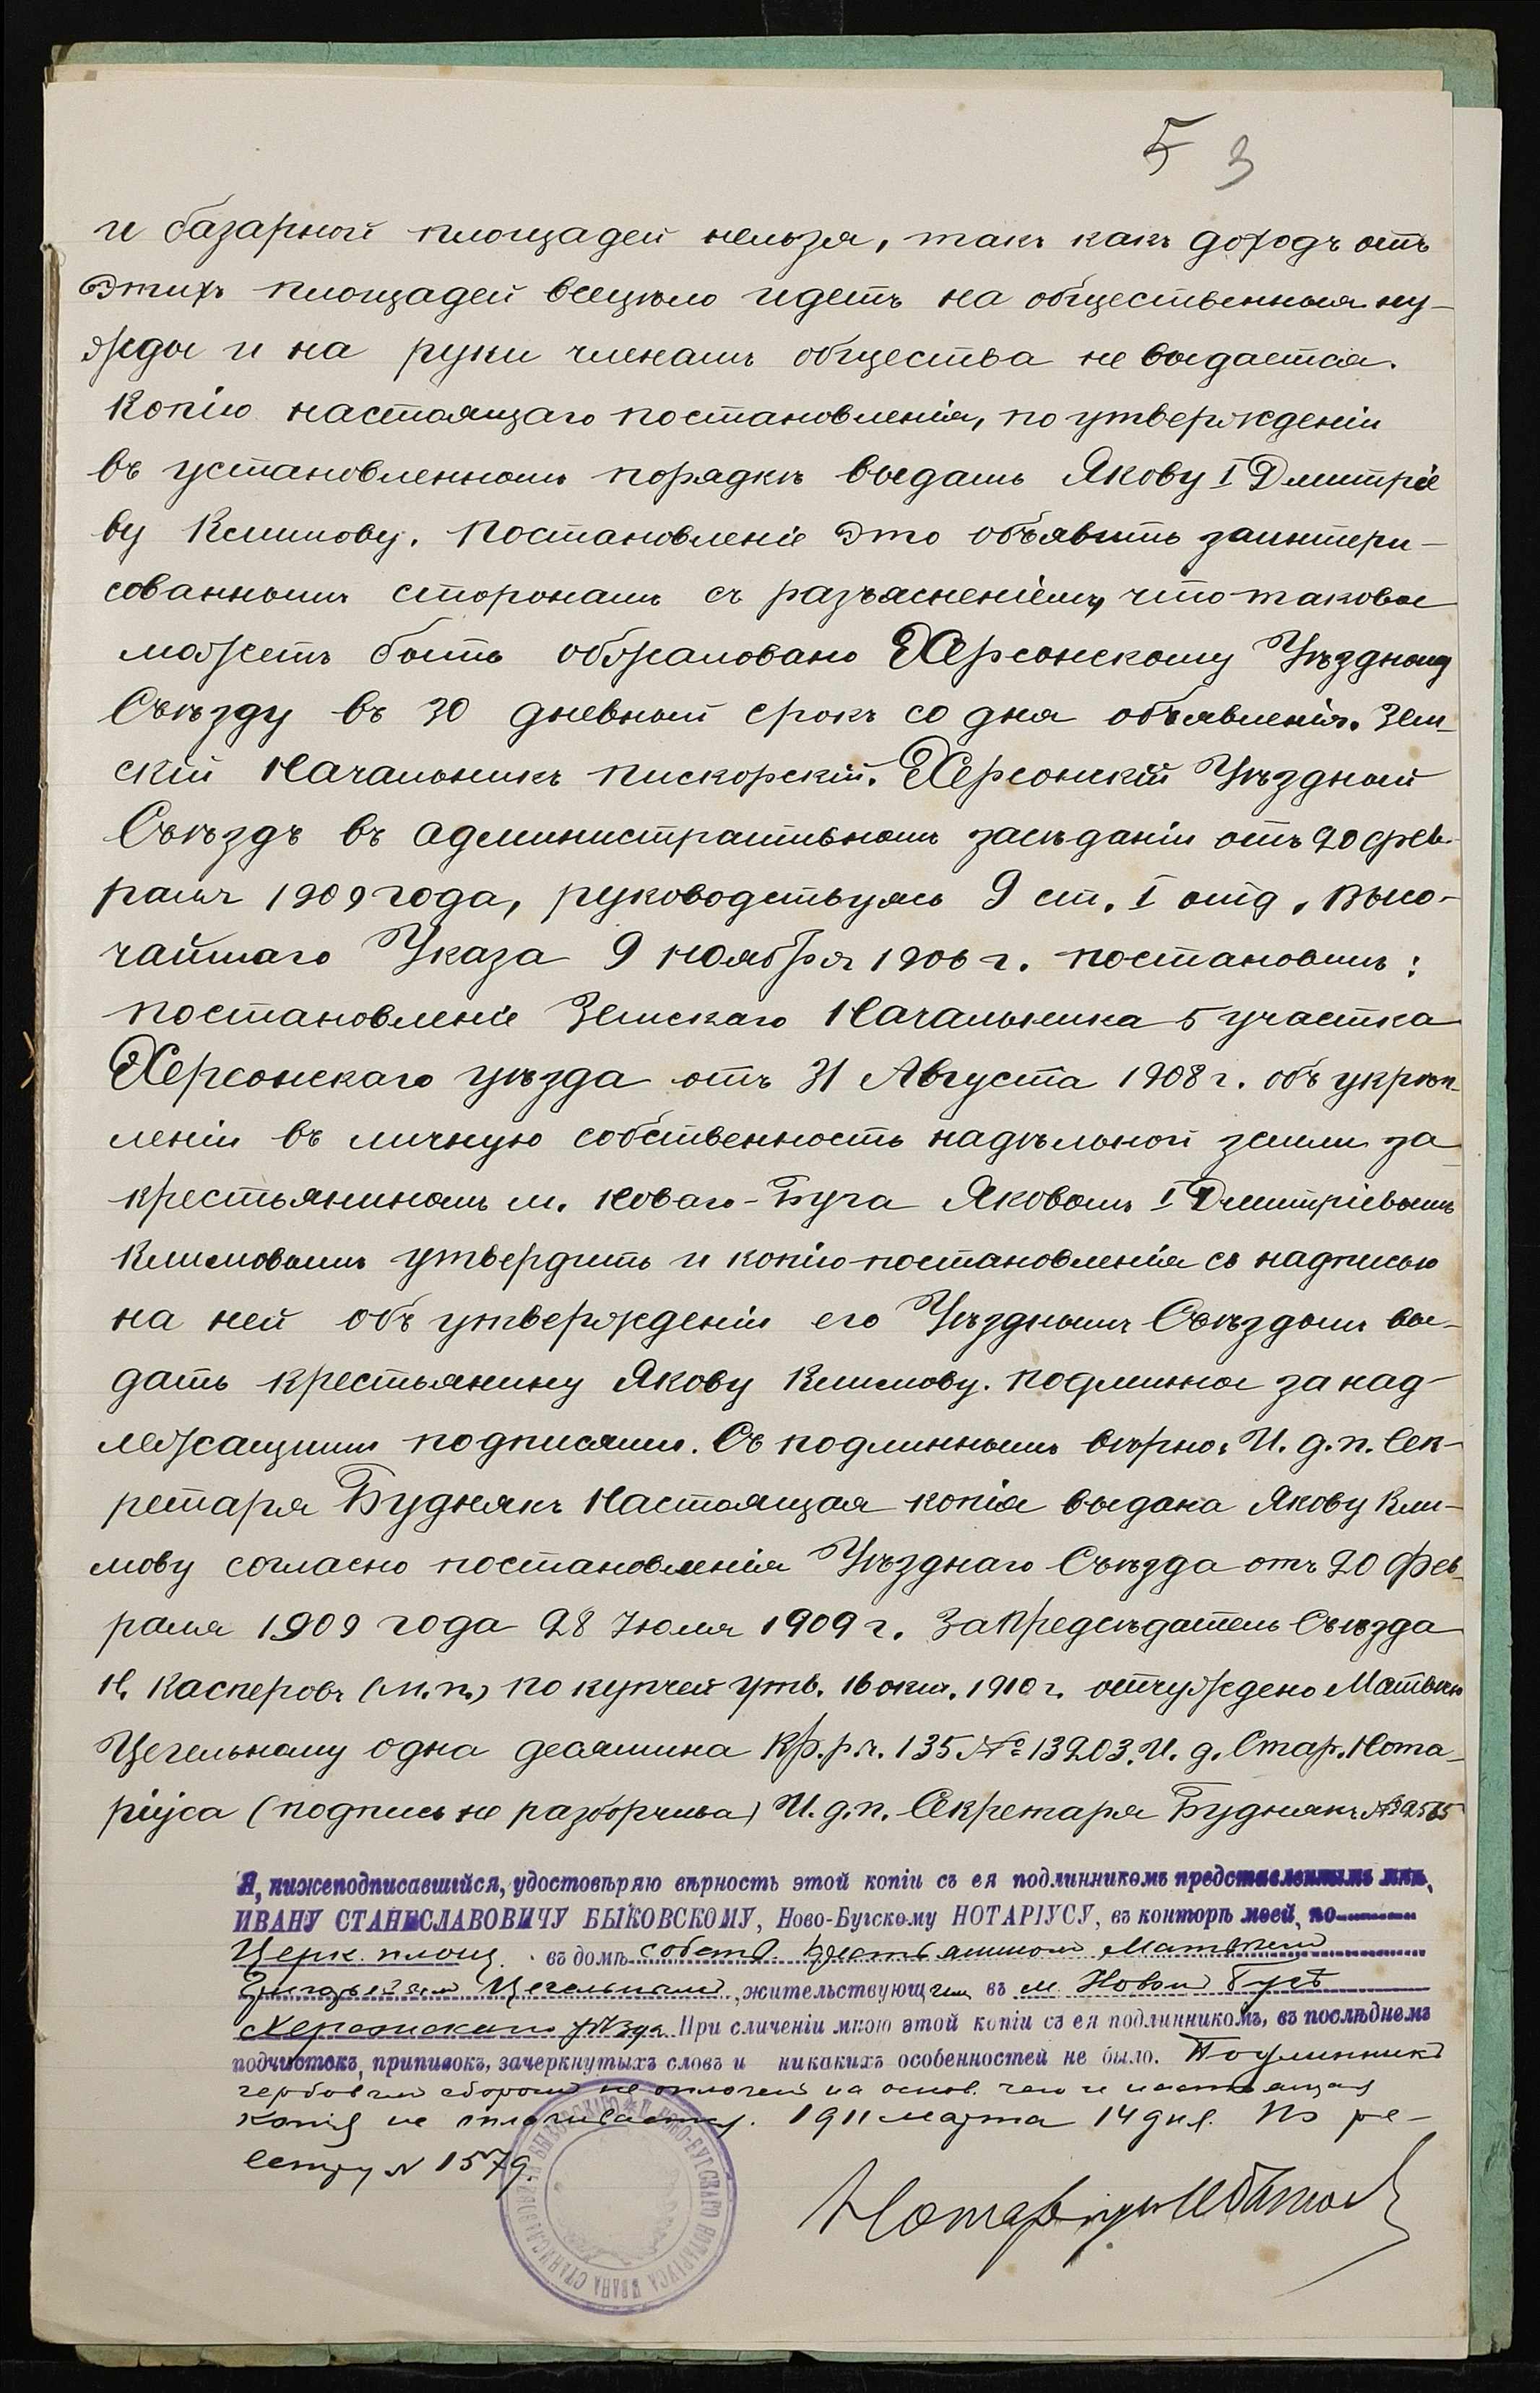 5 3
и базарной площадей нельзя, такъ какъ доходъ отъ
этихъ площадей всецѣло идетъ на общественныя ну-
жды и на руки членамъ общества не выдается.
Копію настоящаго постановленія, по утвержденіи
въ установленномъ порядкѣ выдать Якову I Дмитріе
ву Климову. Постановленіе это объявить заинтери-
сованнымъ сторонамъ съ разъясненіемъ, что таковое
можетъ быть обжаловано Херсонскому Уѣздному
Съѣзду въ 30 дневный срокъ со дня объявленія. Зем-
скій Начальникъ Пискорскій. Херсонскій Уѣздный
Съѣздъ въ административномъ засѣданіи отъ 20 фев-
раля 1909 года, руководствуясь 9 ст. I отд. Высо-
чайшаго Указа 9 ноября 1906 г. постановилъ:
постановленіе Земскаго Начальника 5 участка
Херсонскаго уѣзда отъ 31 Августа 1908 г. объ укрѣп-
леніи въ личную собственность надѣльной земли за
крестьяниномъ м. Новаго-Буга Яковомъ I Дмитріевымъ
Климовымъ утвердить и копію постановленія съ надписью
на ней объ утвержденіи его Уѣзднымъ Съѣздомъ вы-
дать крестьянину Якову Климову. Подлинное за над-
лежащими подписями. Съ подлиннымъ вѣрно: И. д. п. Сек-
ретаря Буднякъ Настоящая копія выдана Якову Кли-
мову согласно постановленія Уѣзднаго Съѣзда отъ 20 фев-
раля 1909 года 28 Июля 1909 г. За Предсѣдатель Съѣзда
Н. Касперовъ (М. п.) По купчей утв. 16 окт. 1910 г. отчуждено Матвѣю
Цегельному одна десятина Кр. р. ч. 135 № 13203. И. д. Стар. Нота-
ріуса (подпись не разборчива) И. д. п. Секретаря Буднякъ № 2565
Я, нижеподписавшійся, удостовѣряю вѣрность этой копіи съ ея подлинникомъ представленнымъ мнѣ,
ИВАНУ СТАНИСЛАВОВИЧУ БЫКОВСКОМУ, Ново-Бугскому НОТАРІУСУ, въ конторѣ моей, по
Церк. площ. въ домѣ собств. крестьяниномъ Матвѣемъ
Цегельнымъ, жительствующимъ въ м. Новомъ Бугѣ
Херсонскаго уѣзда. При сличеніи мною этой копіи съ ея подлинникомъ, въ послѣднемъ
подчистокъ, приписокъ, зачеркнутыхъ словъ и никакихъ особенностей не было. Подлинникъ
гербовымъ сборомъ не оплоченъ на основ. чего и настоящая
копія не оплачивается. 1911 марта 14 дня. По ре-
естру N 1579.
Нотаріусъ